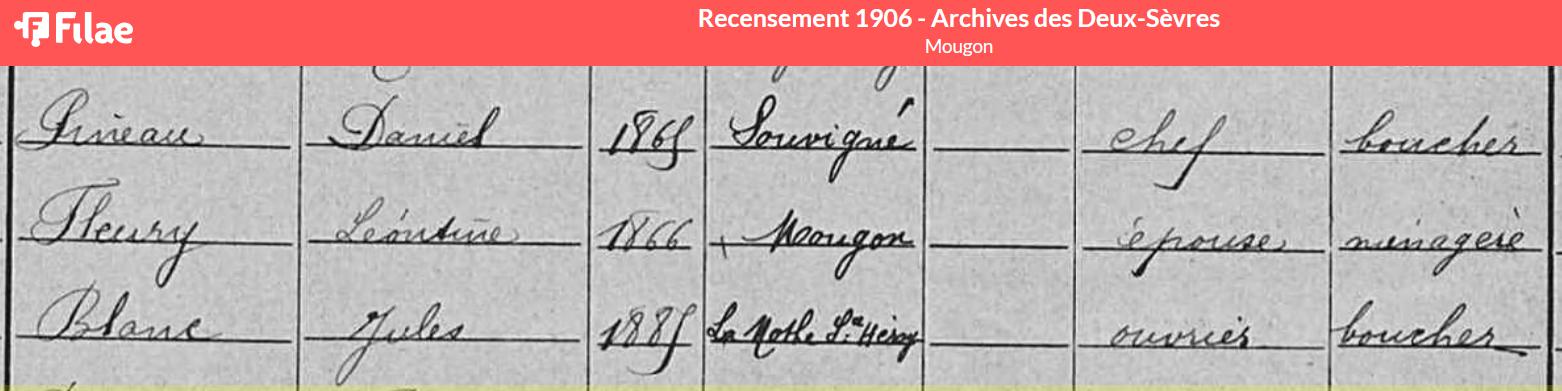 Filae
Recensement 1906 - Archives des Deux-Sèvres
Mougon
Pineau Daniel 1865 Souvigné chef boucher
Fleury Léontine 1866 Mougon épouse ménagère
Blanc Jules 1885 La Mothe St Héray ouvrier boucher